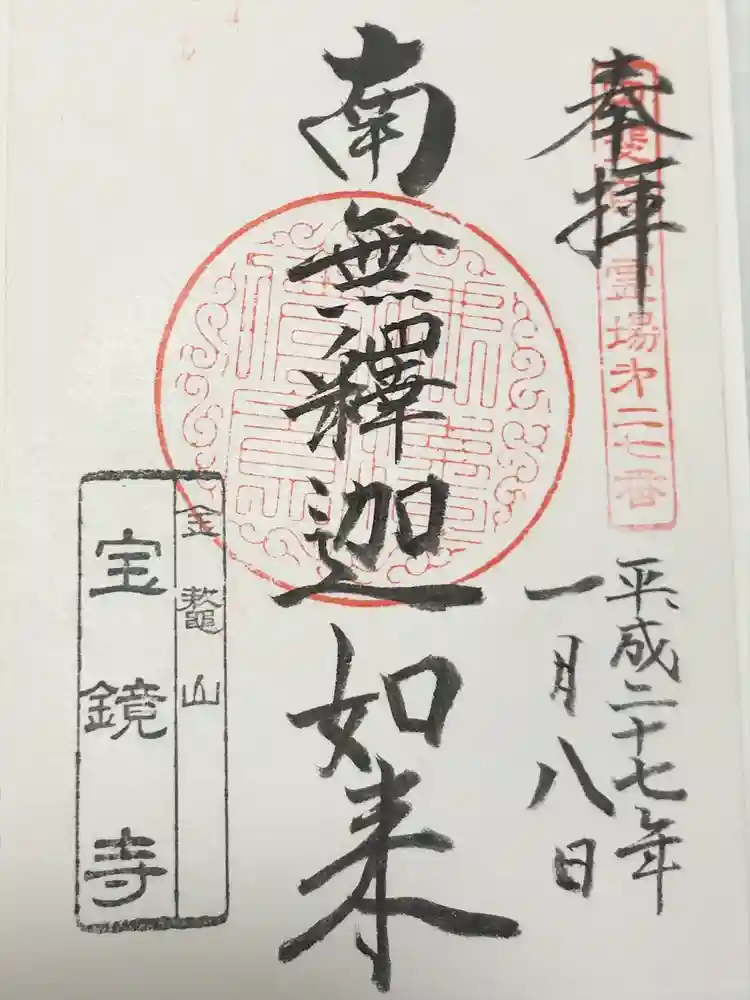 奉拝
霊場第二七番
平成二十七年
一月八日
南無釋迦如来
金鰲山
宝鏡寺